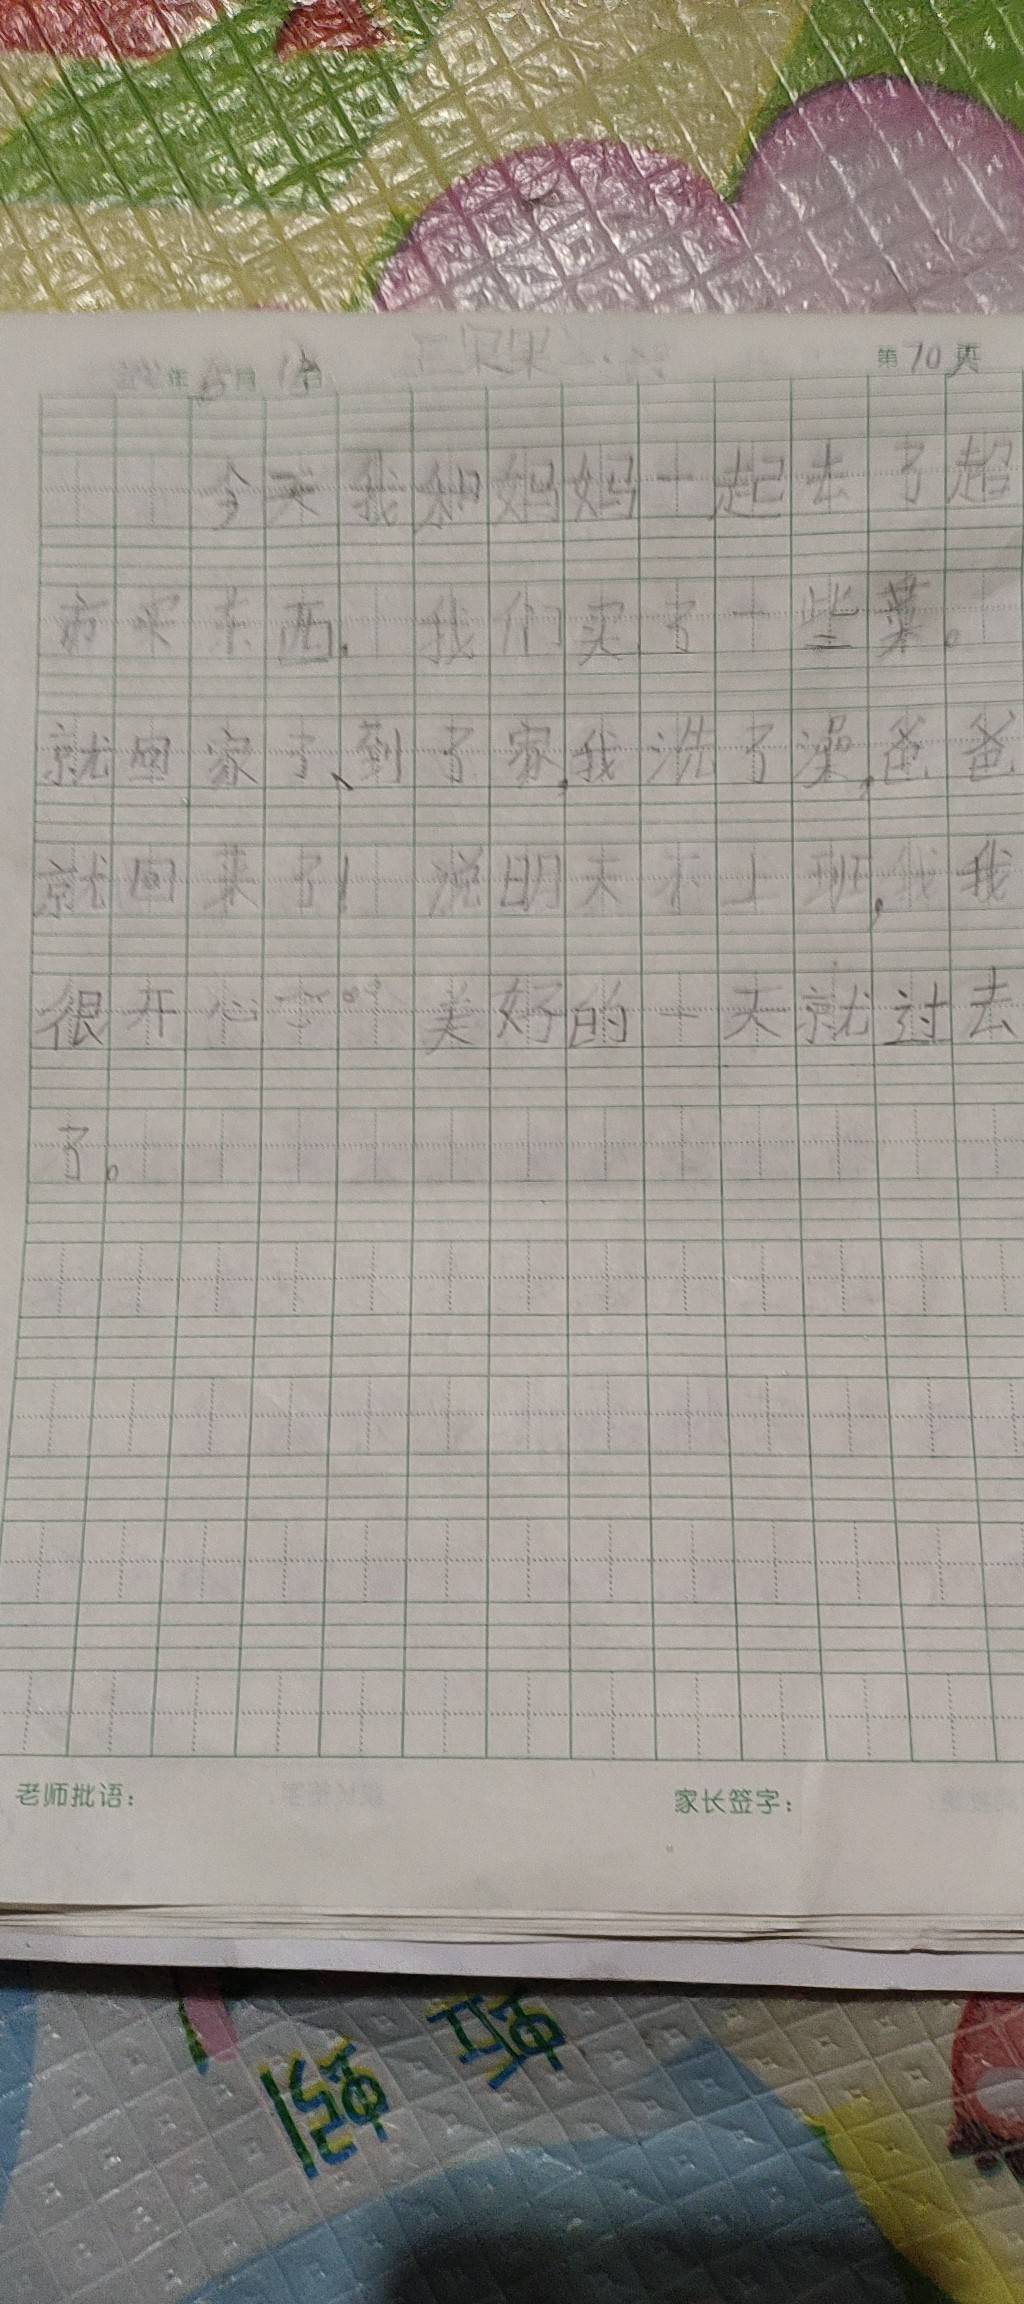 年 月 日 第70页
今天我和妈妈一起去了超
市买东西.我们卖了一些菜。
就回家了、到了家,我洗了澡,爸爸
就回来了!说明天不上班,我我
很开心 美好的一天就过去
了。
老师批语: 家长签字: